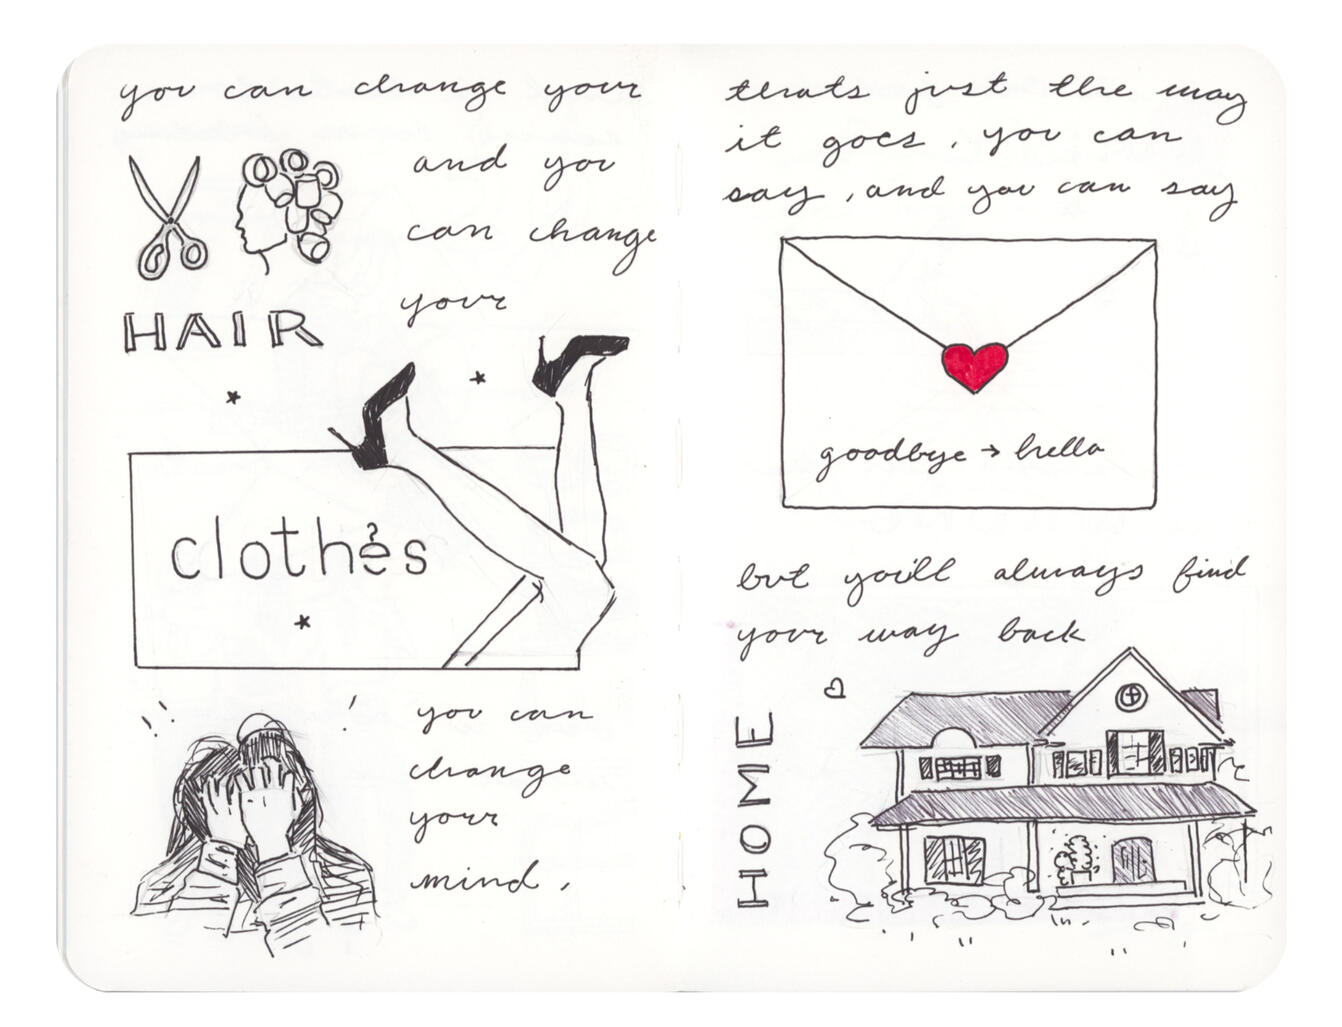 you can change your
HAIR
and you
can change
your
clothes
you can
change
your
mind,
thats just the way
it goes, you can
say, and you can say
goodbye → hello
but you'll always find
your way back
HOME